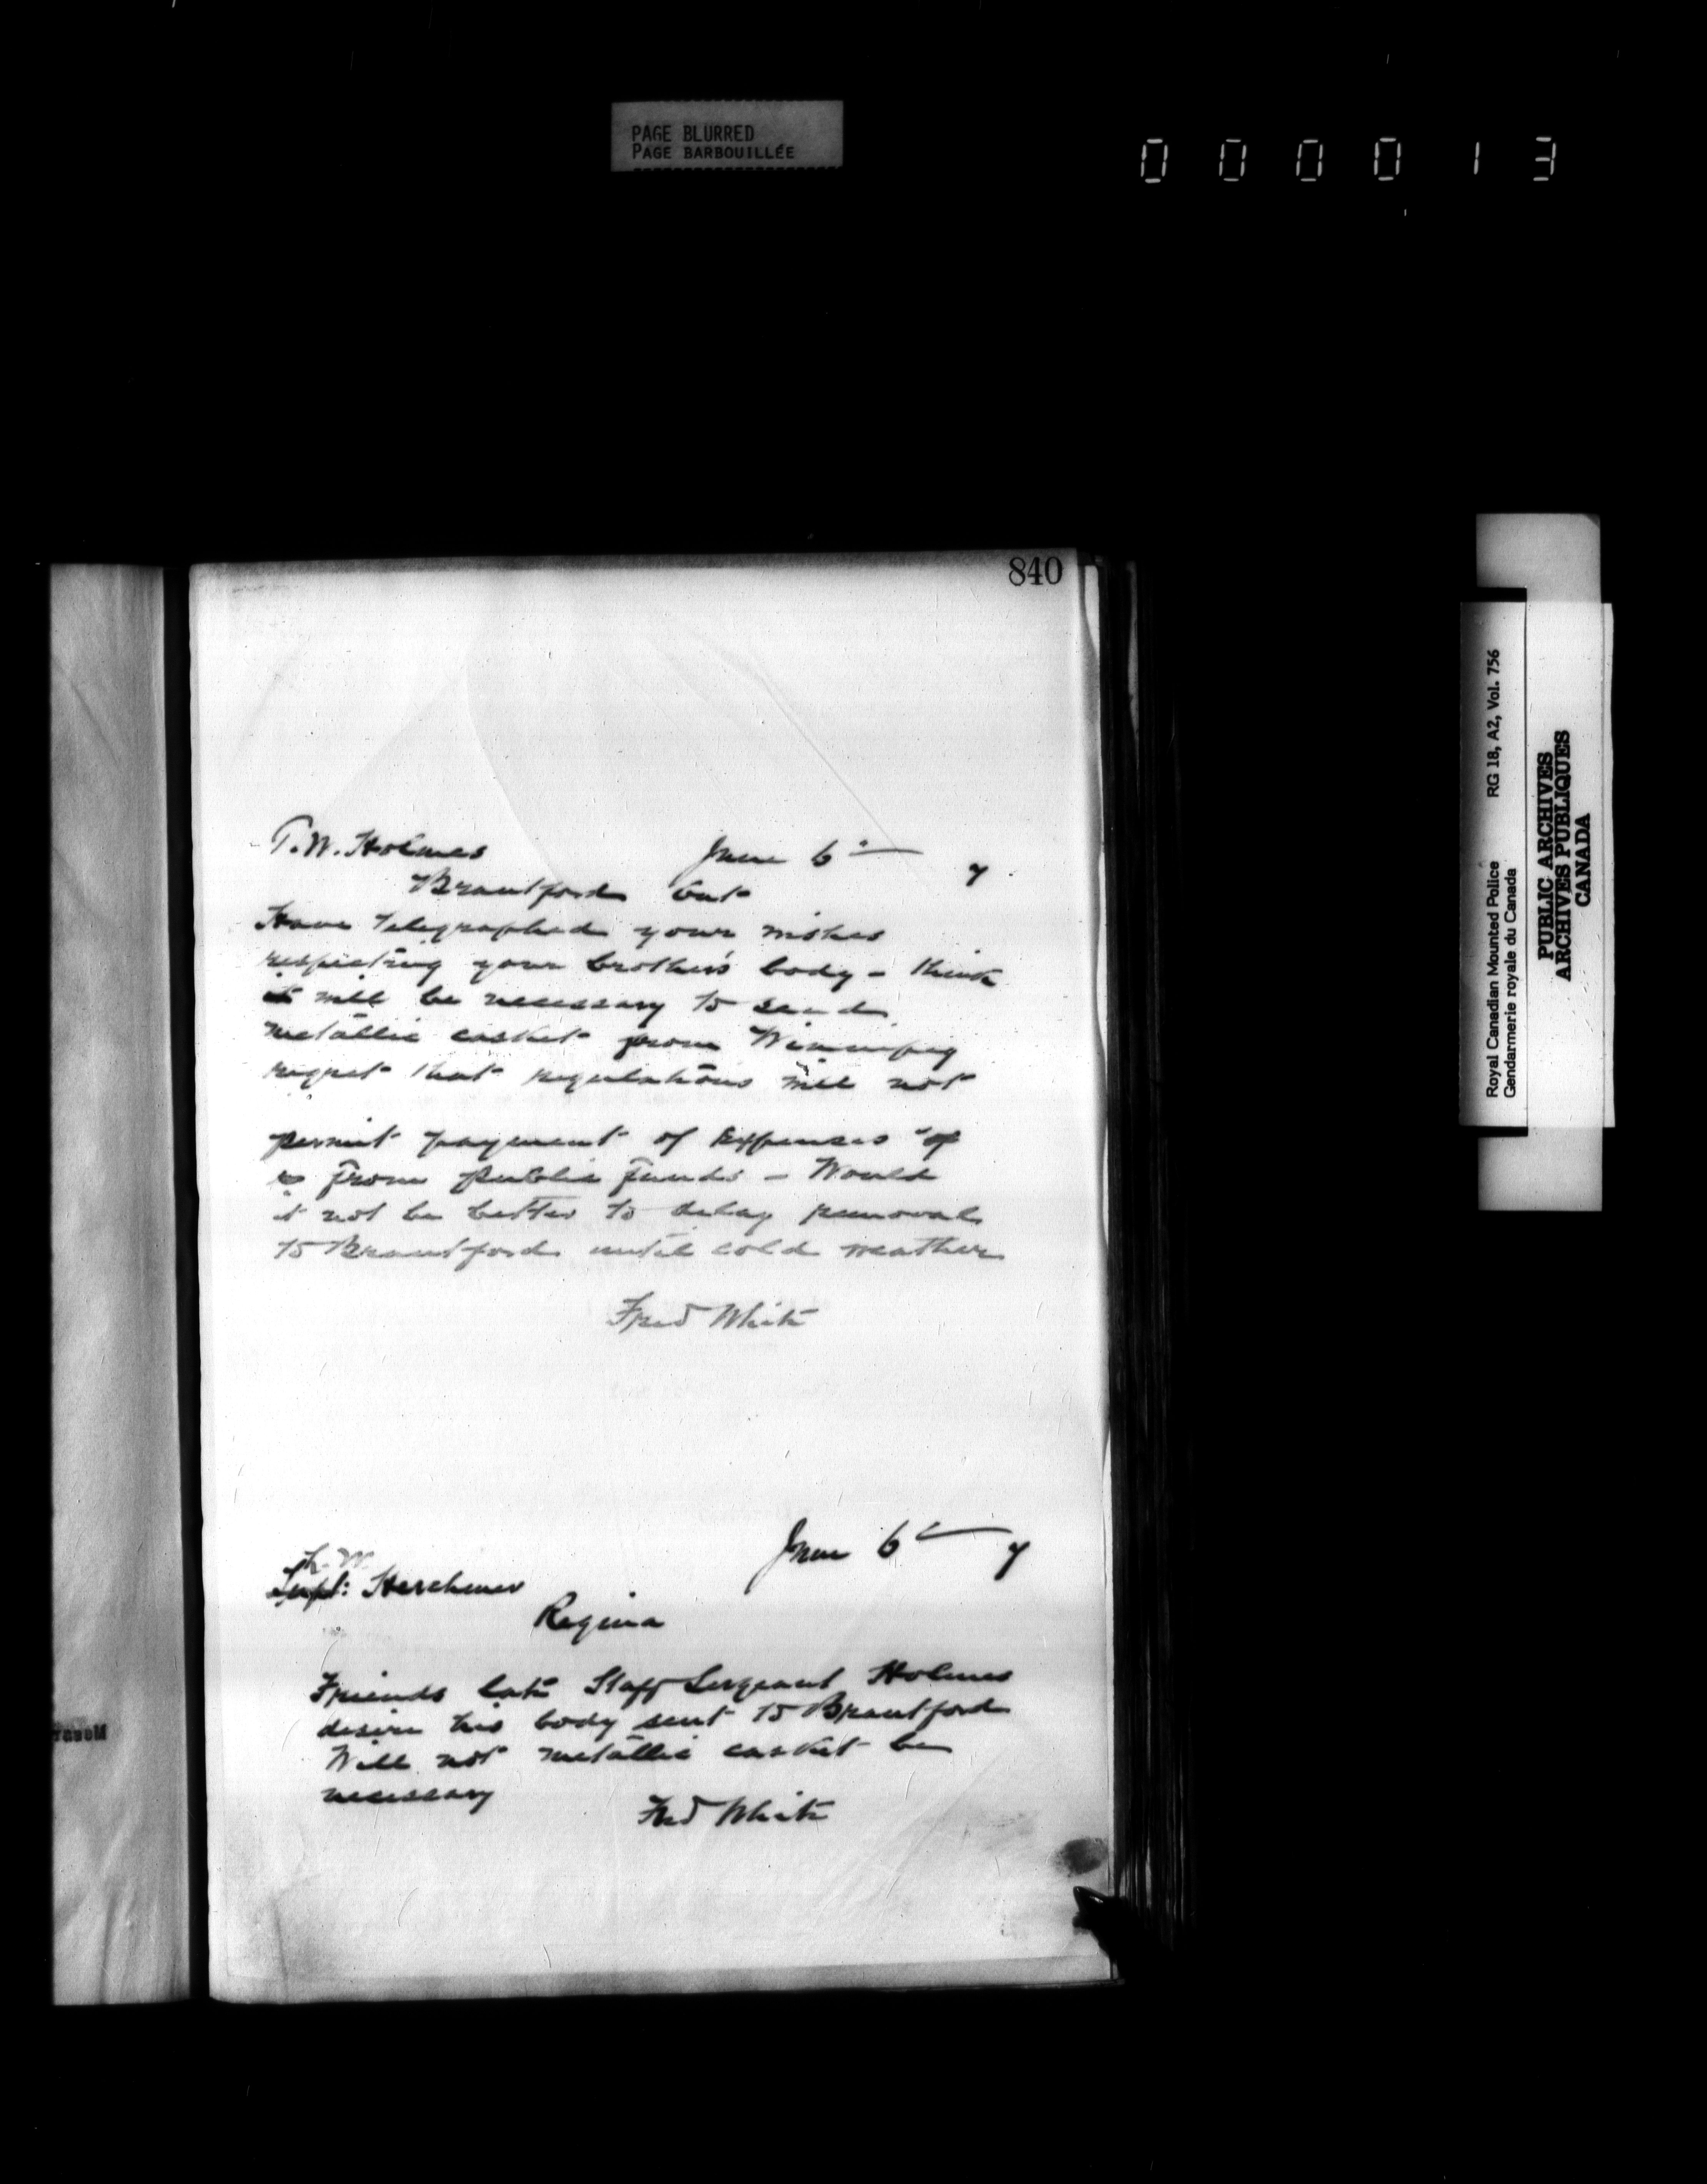 PAGE BLURRED
PAGE BARBOUILLÉE
000013
840
T.W. Holmes
June 6th 7
Brantford Ont
Have telegraphed your wishes
respecting your brother's body - think
it will be necessary to send
metallic casket from Winnipeg
regret that regulations will not
permit payment of Expenses of
from public funds - Would
it not be better to delay removal
to Brantford until cold weather
Fred White
June 6th 7
L.W.
Supt: Herchmer
Regina
Friends late Staff Sergeant Holmes
desire his body sent to Brantford
Will not metallic casket be
necessary
Fred White
Royal Canadian Mounted Police RG 18, A2, Vol. 756
Gendarmerie royale du Canada
PUBLIC ARCHIVES
ARCHIVES PUBLIQUES
CANADA